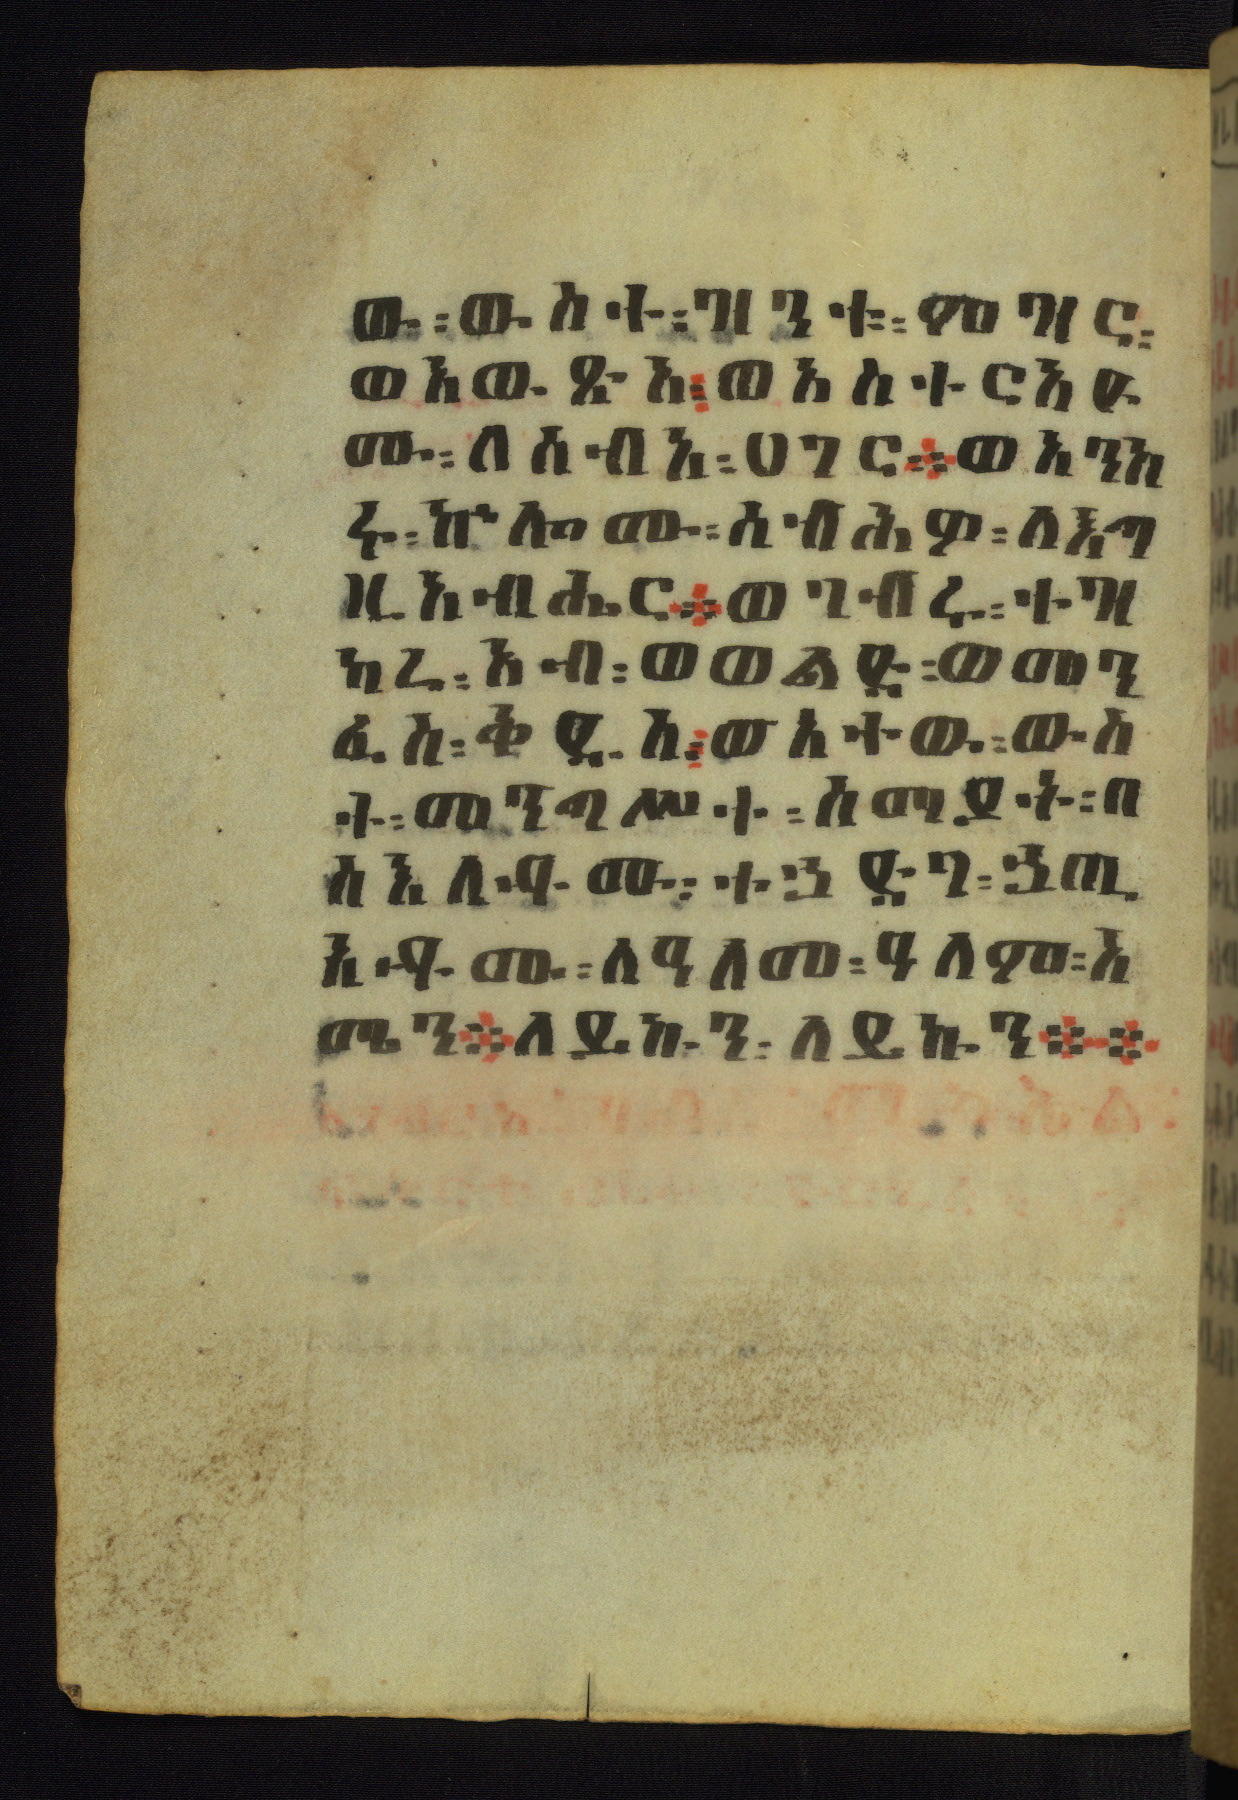 ው፡ውስተ፡ዝንቱ፡ምዝር፡
ወአውፅአ፤ወአስተርአዮ
ሙ፡ለሰብአ፡ሀገር።ወአንከ
ሩ፡ኵሎሙ፡ሰብሕዎ፡ለእግ
ዚአብሔር።ወገብሩ፡ተዝ
ካረ፡አብ፡ወወልድ፡ወመን
ፈስ፡ቅዱስ፤ወአተው፡ውስ
ተ፡መንግሥተ፡ሰማያት፡በ
ስእለቶሙ፡ተኃድግ፡ኃጢ
አቶሙ፡ለዓለመ፡ዓለም፡አ
ሜን።ለይኩን፡ለይኩን።